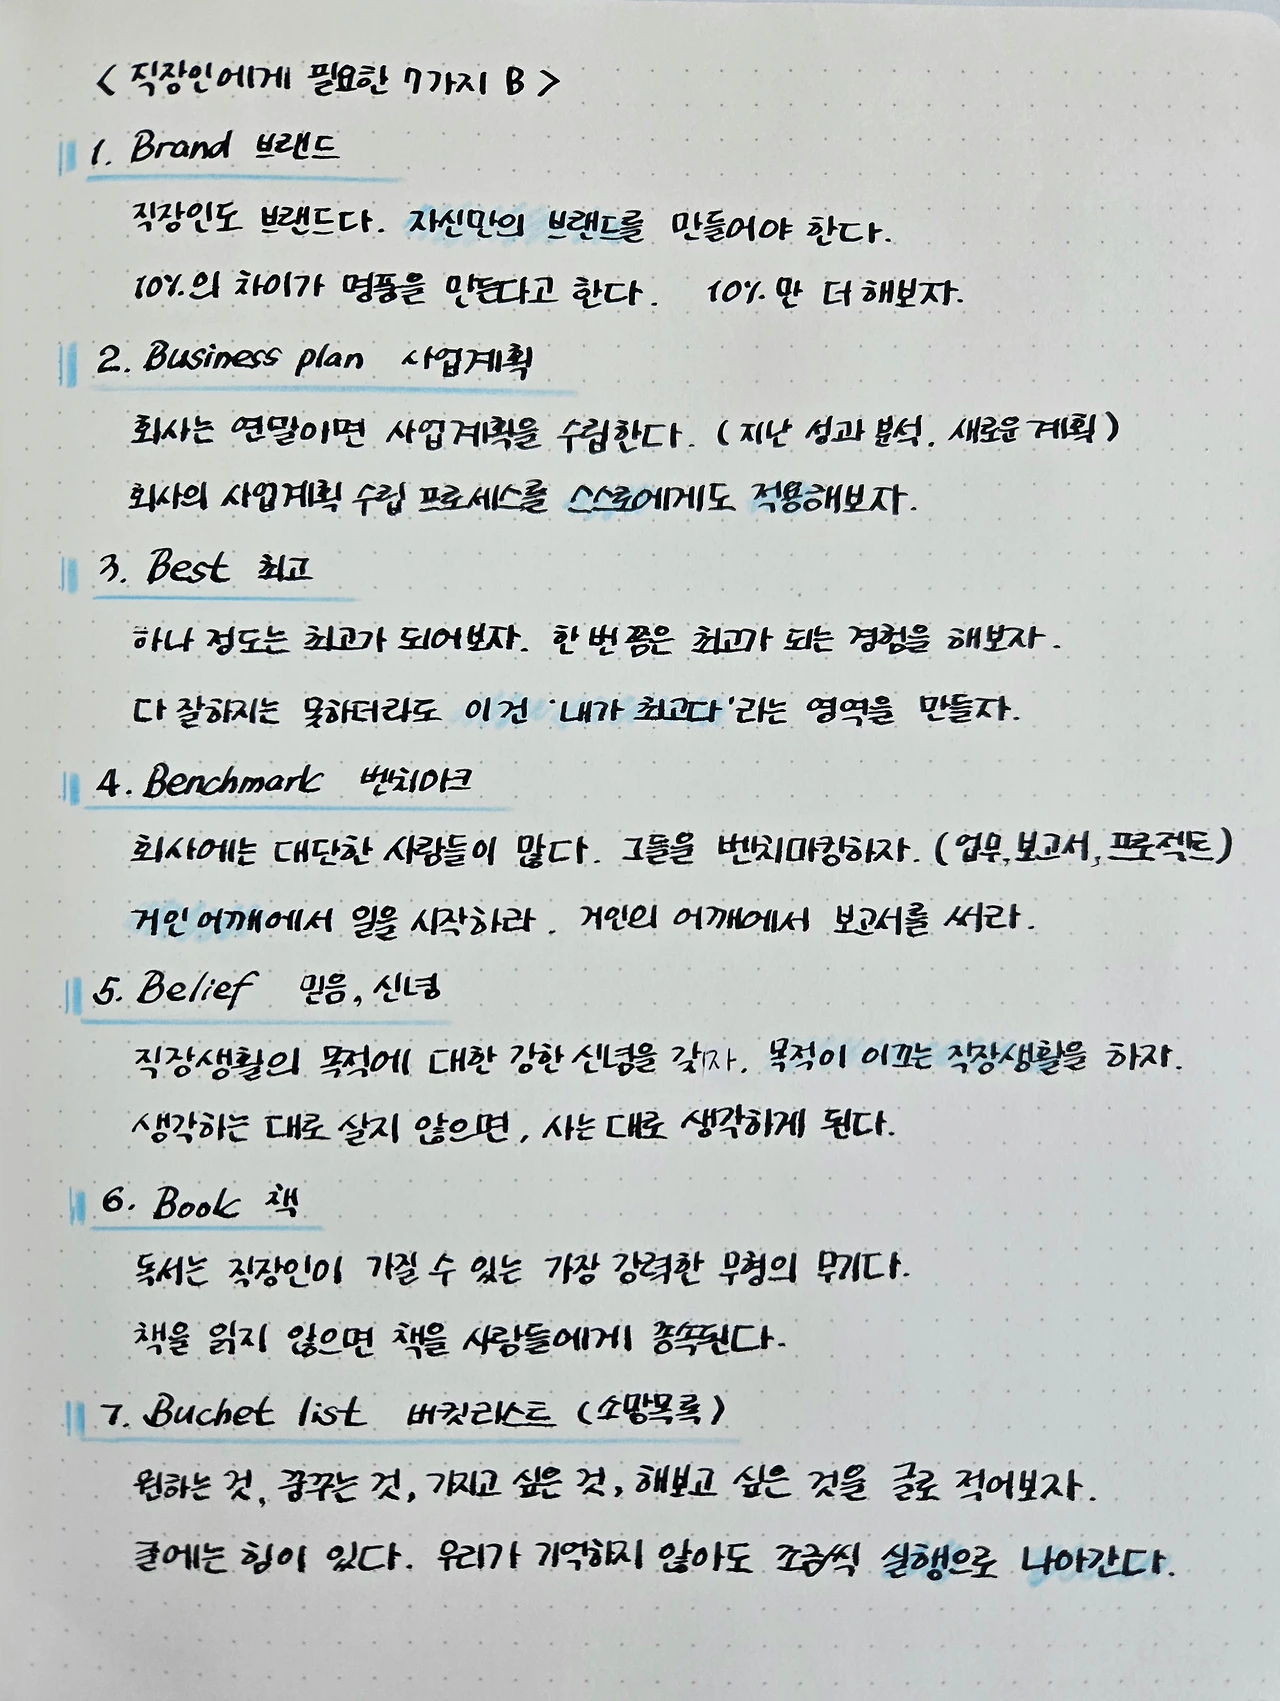 < 직장인에게 필요한 7가지 B >
1. Brand 브랜드
직장인도 브랜드다. 자신만의 브랜드를 만들어야 한다.
10%의 차이가 명품을 만든다고 한다. 10%만 더 해보자.
2. Business plan 사업계획
회사는 연말이면 사업계획을 수립한다. (지난 성과 분석, 새로운 계획)
회사의 사업계획 수립 프로세스를 스스로에게도 적용해보자.
3. Best 최고
하나 정도는 최고가 되어보자. 한 번 쯤은 최고가 되는 경험을 해보자.
다 잘하지는 못하더라도 이건 '내가 최고다'라는 영역을 만들자.
4. Benchmark 벤치마크
회사에는 대단한 사람들이 많다. 그들을 벤치마킹하자. (업무, 보고서, 프로젝트)
거인 어깨에서 일을 시작하라. 거인의 어깨에서 보고서를 써라.
5. Belief 믿음, 신념
직장생활의 목적에 대한 강한 신념을 갖자. 목적이 이끄는 직장생활을 하자.
생각하는 대로 살지 않으면, 사는 대로 생각하게 된다.
6. Book 책
독서는 직장인이 가질 수 있는 가장 강력한 무형의 무기다.
책을 읽지 않으면 책을 사람들에게 종속된다.
7. Buchet list 버킷리스트 (소망목록)
원하는 것, 꿈꾸는 것, 가지고 싶은 것, 해보고 싶은 것을 글로 적어보자.
글에는 힘이 있다. 우리가 기억하지 않아도 조금씩 실행으로 나아간다.